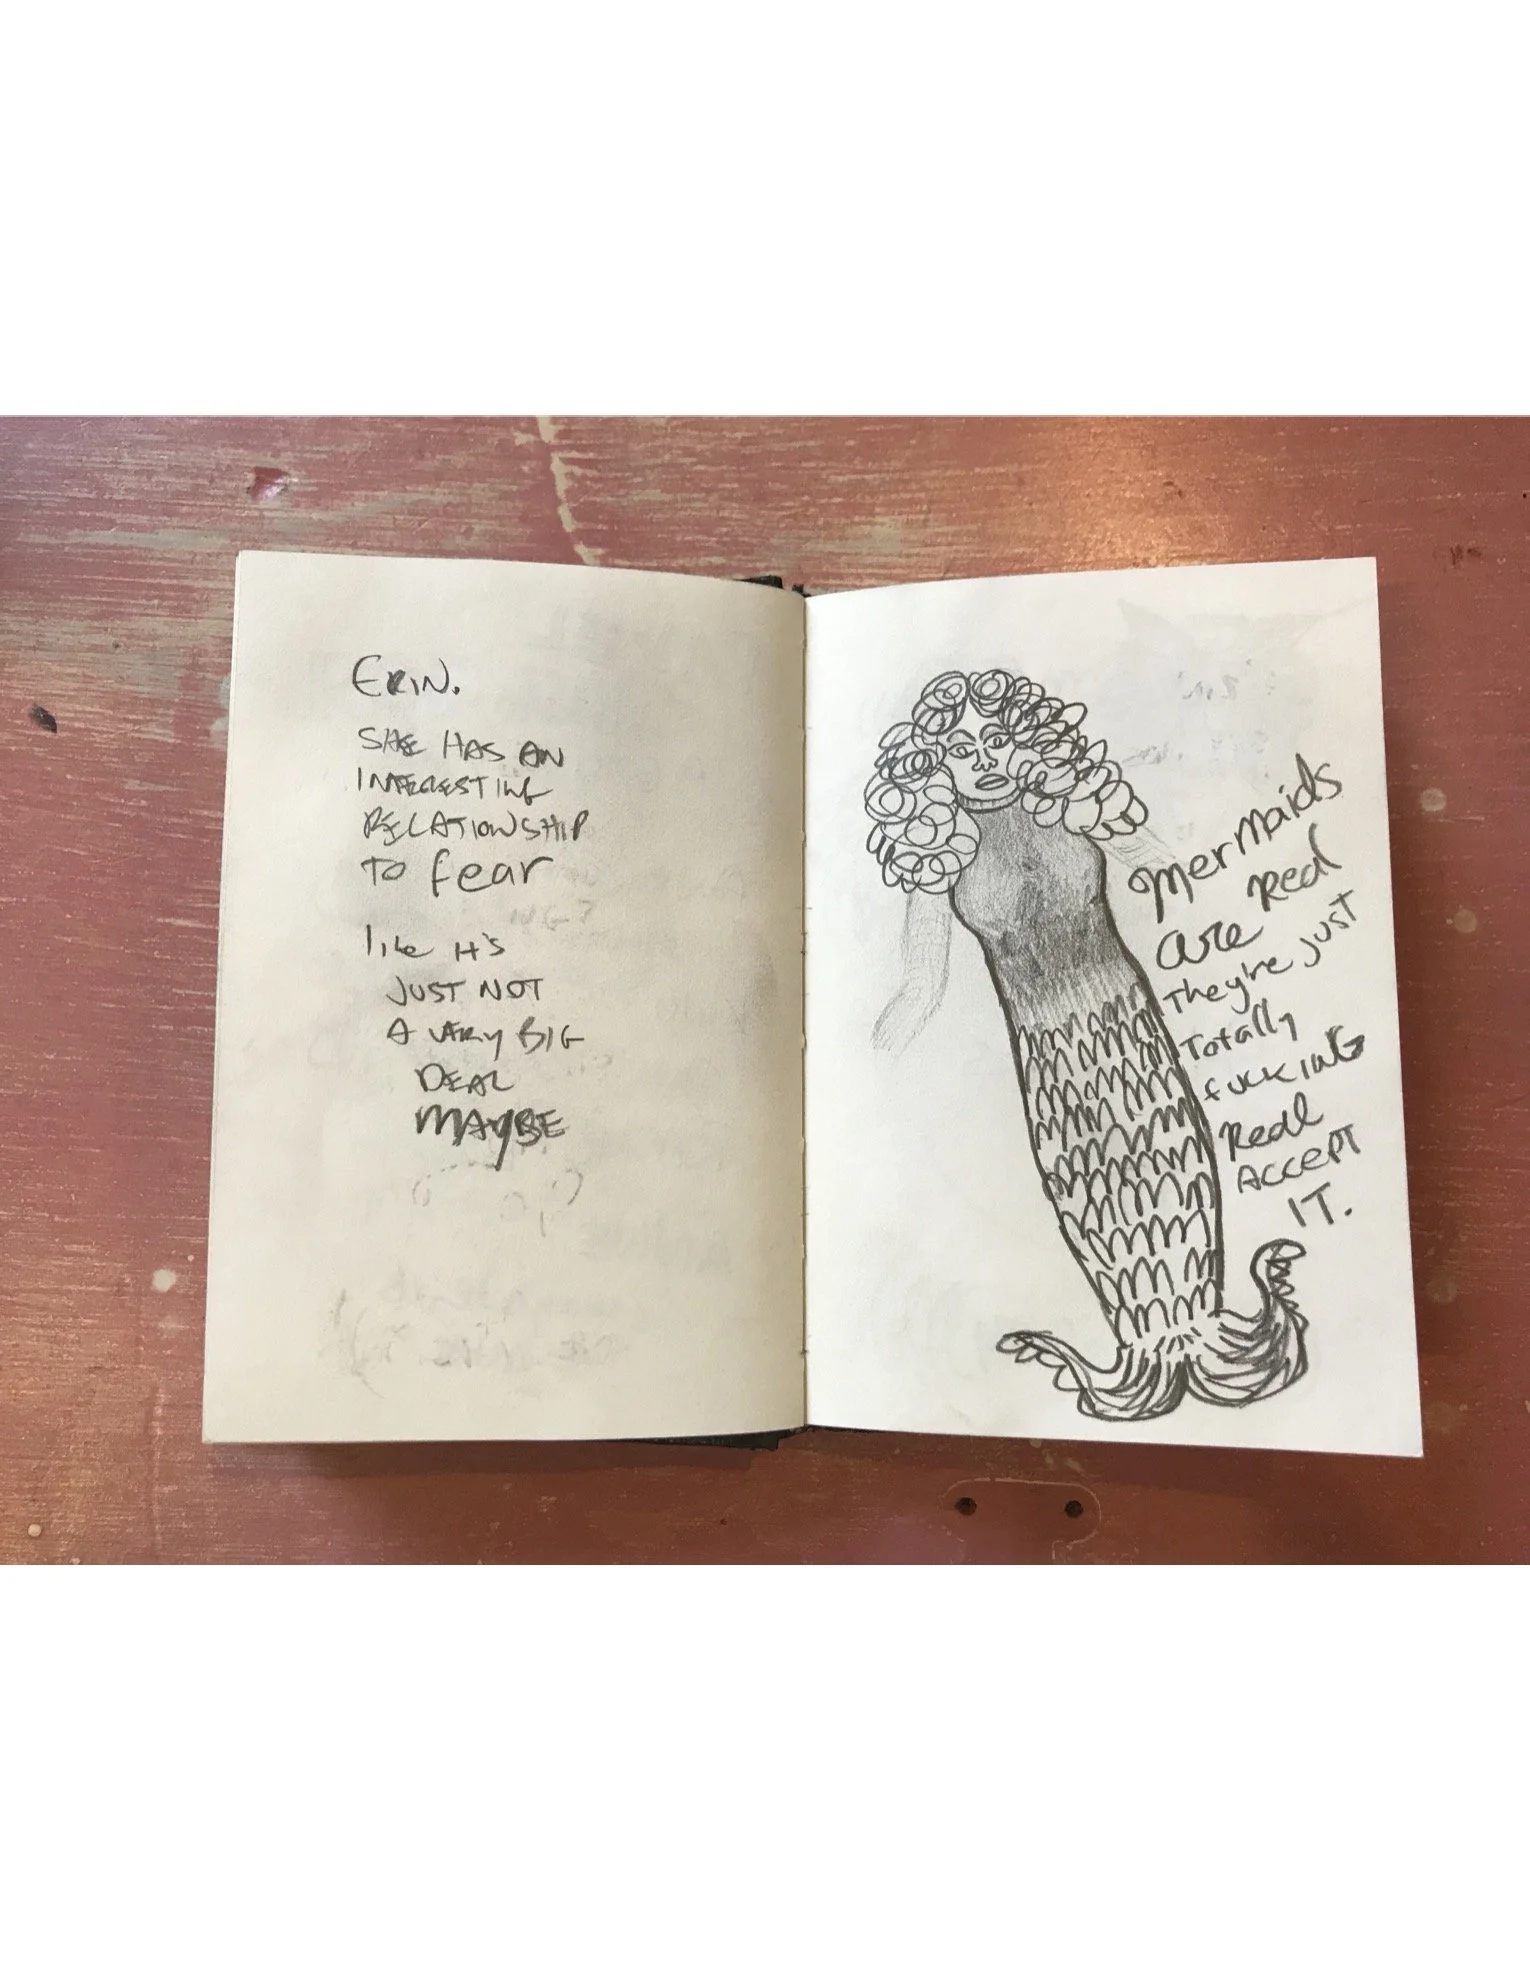 ERIN.
SHE HAS AN
INTERESTING
RELATIONSHIP
TO fear
like it's
JUST NOT
A VERY BIG
DEAL
MAYBE
mermaids
are real
They're just
Totally
fucking
Real
ACCEPT
IT.